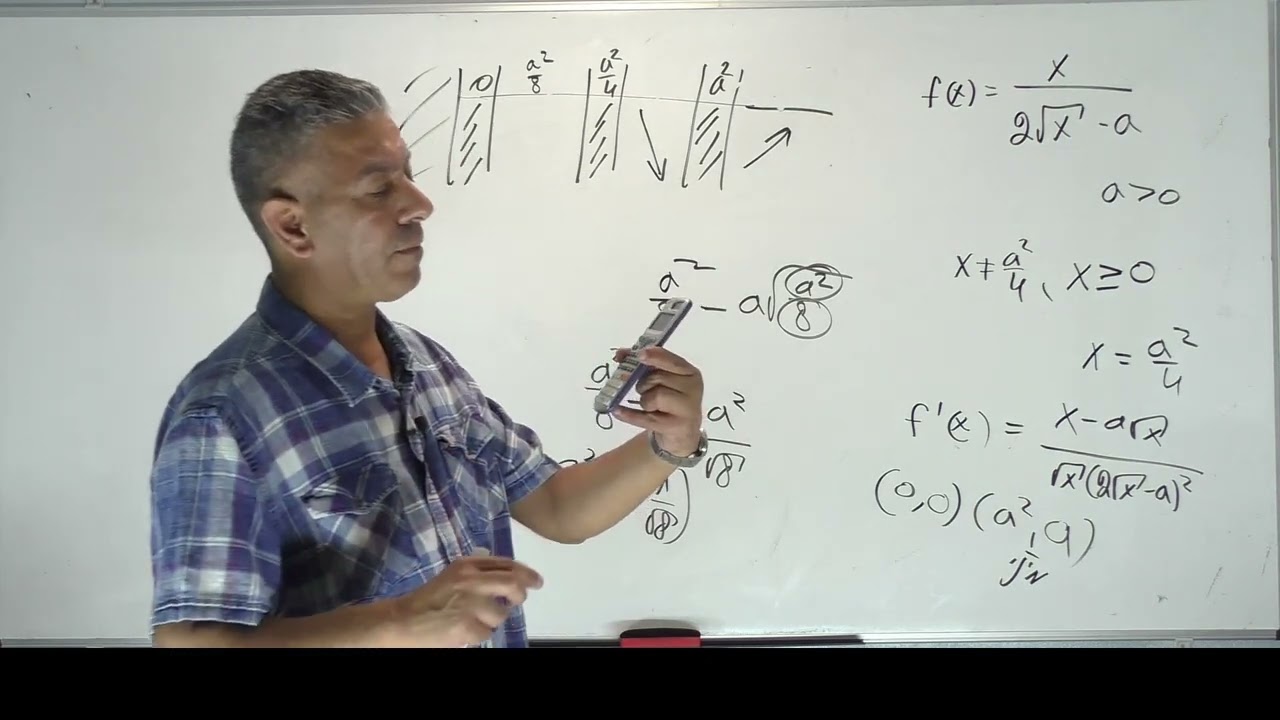 0 a²/8 a²/4 a²
f(x) = x/(2√x - a)
a>0
x ≠ a²/4, x ≥ 0
x = a²/4
f'(x) = (x-a√x)/(√x(2√x-a)²)
(0,0) (a², a)
a² - a√(a²/8)
a² a²/√8
√8)